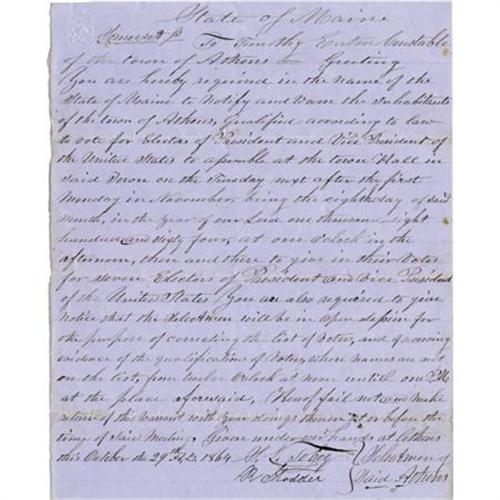 State of Maine
Somerset ss To Timothy Eaton Constable
of the town of Athens Greeting
You are hereby required in the name of the
State of Maine to Notify and Warn the Inhabitants
of the town of Athens, Qualified according to law
to vote for Electors of President and Vice President of
the United States to assemble at the town Hall in
said Town on the Tuesday next after the first
Monday in November, being the eighth day of said
Month, in the Year of our Lord one thousand eight
hundred and sixty four, at one O clock in the
afternoon, then and there to give in their Votes
for seven Electors of President and Vice President
of the United States You are also required to give
Notice that the Selectmen will be in open session for
the purpose of correcting the list of Voters, and receiving
evidence of the qualifications of Voters, whose names are not
on the list, from twelve Oclock at noon untill one P.M
at the place aforesaid, Hereof fail not and make
return of this Warrant with Your doings thereon at or before the
time of said Meeting, Given under our hands at Athens
this October the 29th A.D. 1864 Selectmen of
said Athens